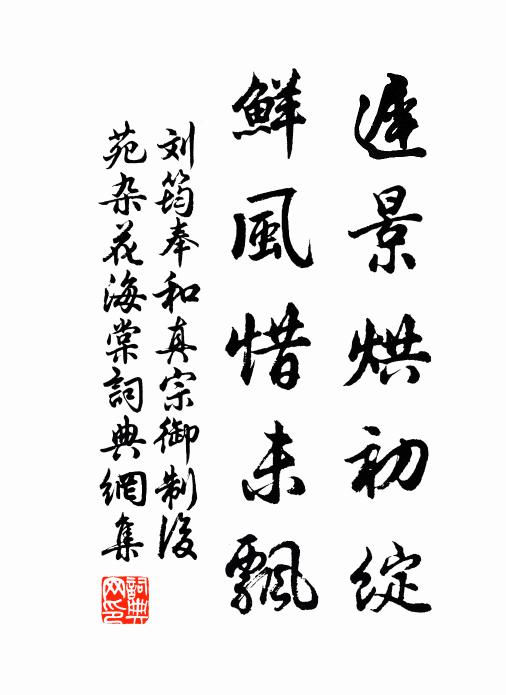 遲景烘初綻
鮮風惜未飄
刘筠奉和真宗御制後
苑杂花海棠詞典網集
詞典網印